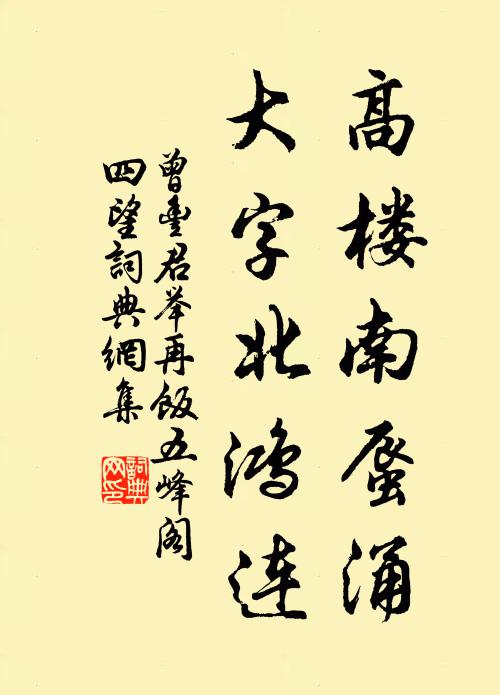 高楼南蜃涌
大字北鸿连
曾豊君举再饭五峰阁
四望詞典網集
詞典网印